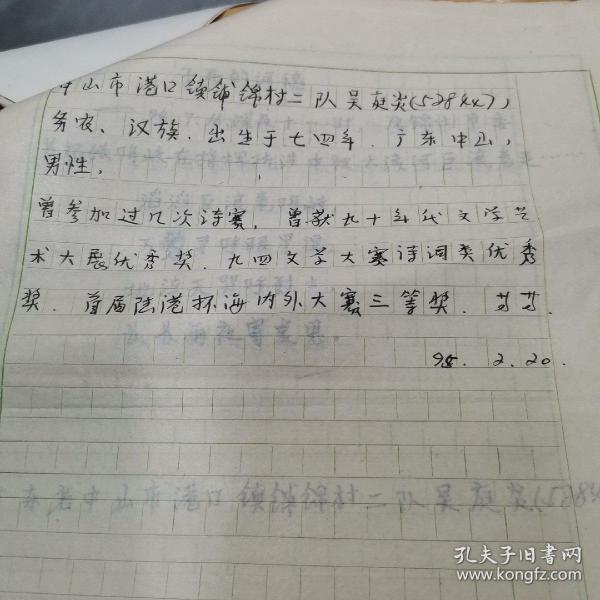 中山市港口镇铺锦村二队吴庭炎(528447),
务农、汉族.出生于七四年.广东中山,
男性.
曾参加过几次诗赛,曾获九十年代文学艺
术大展优秀奖.九四文学大赛诗词类优秀
奖.首届陆港杯海内外大赛三等奖.等等.
95. 2. 20.
中山市港口镇铺锦村二队吴庭炎(5284
孔夫子旧书网
www.kongfz.com